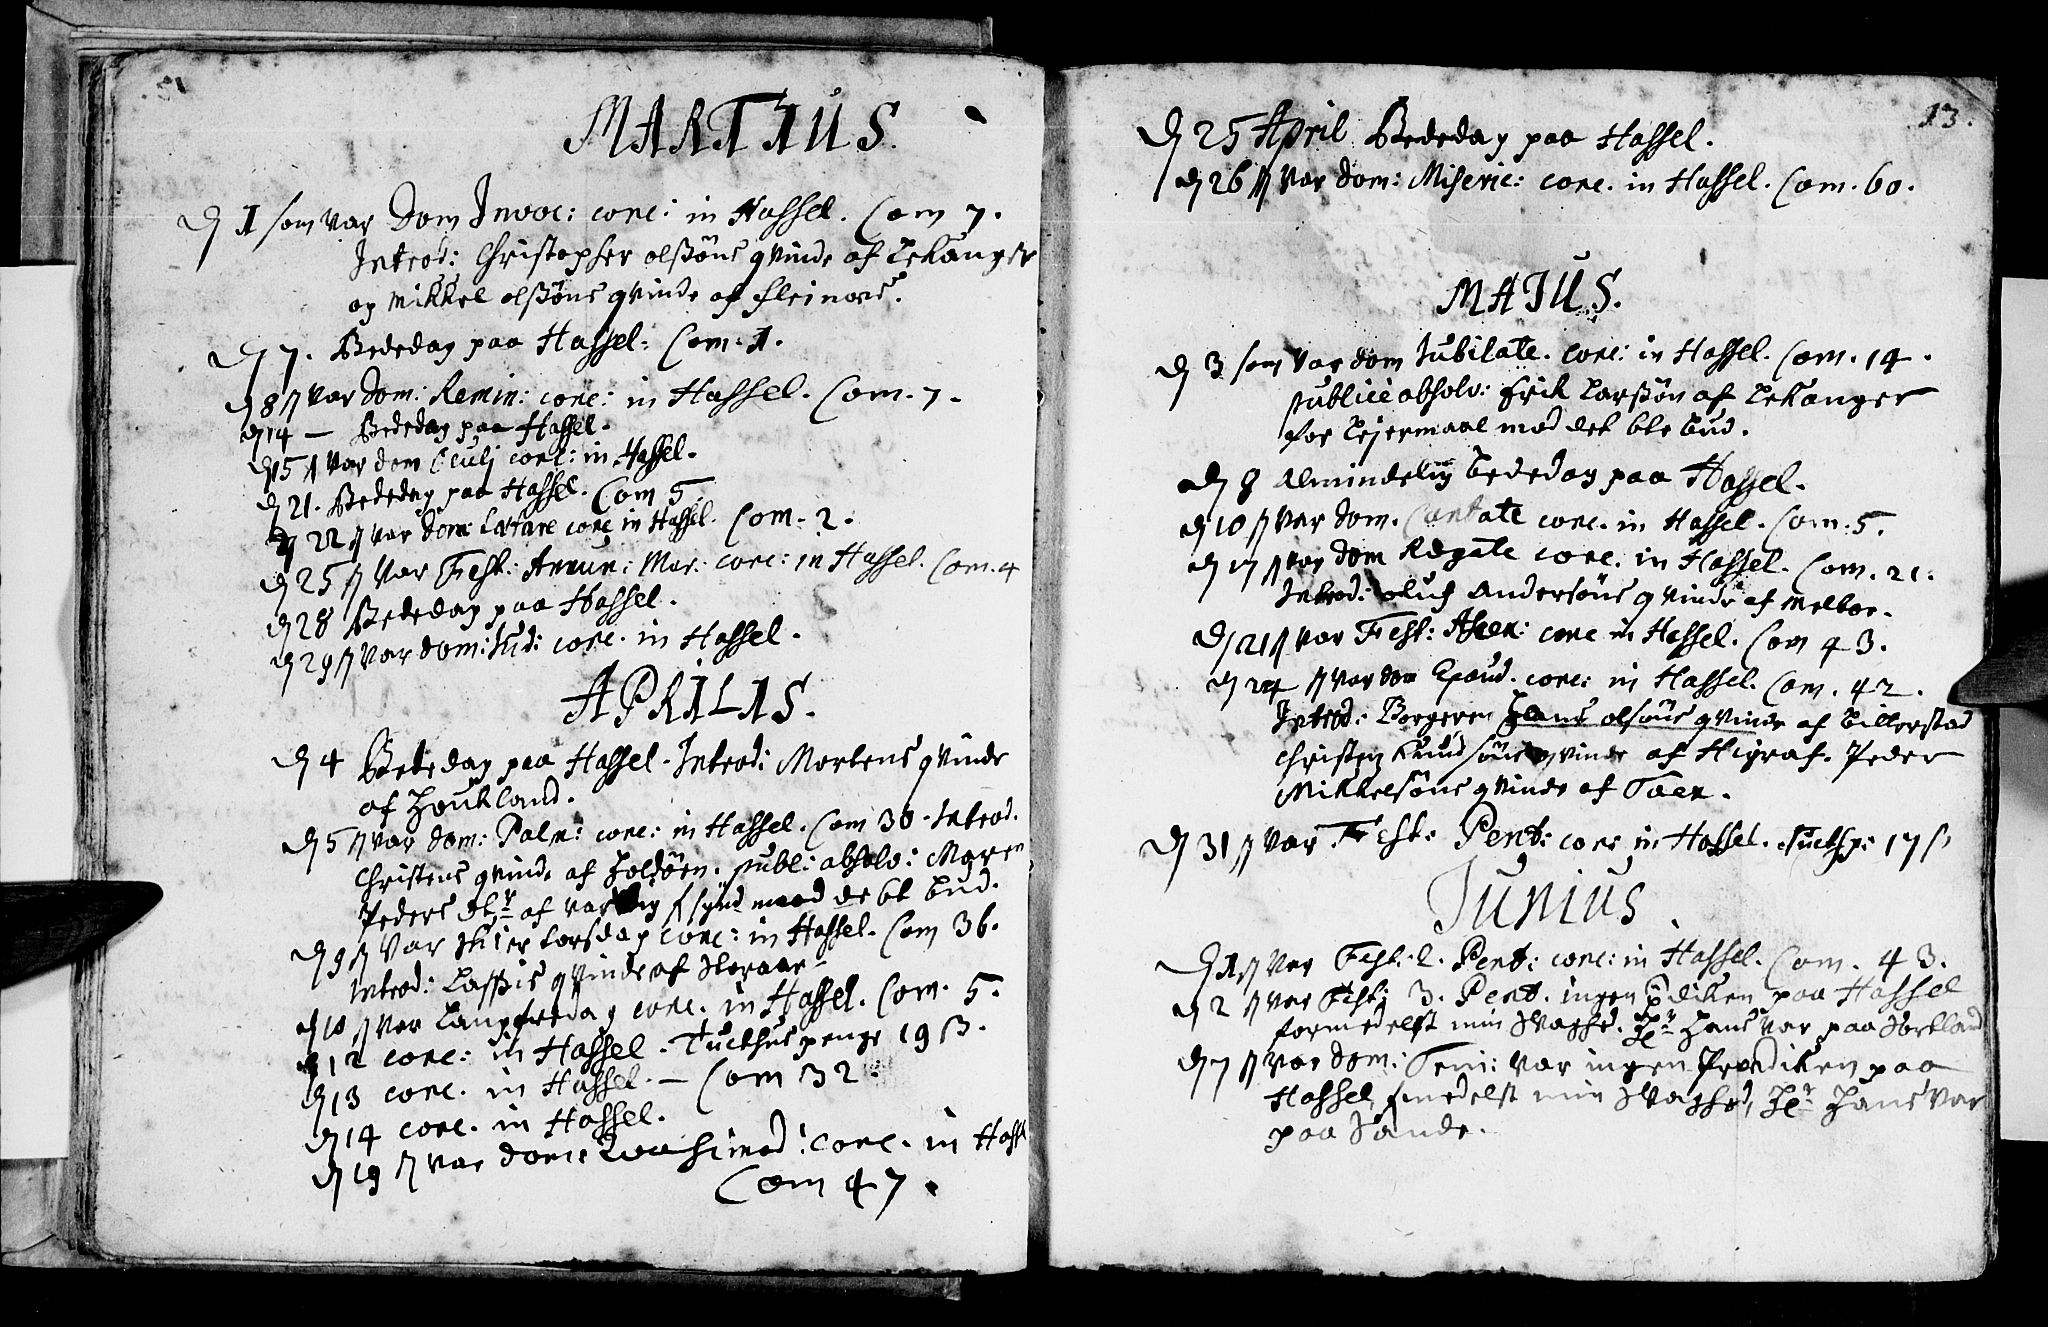 MARTIUS.
D 1 som var Dom Invoc: conc: in Hassel. Com 7.
Introd: Christopher olßöns qvinde af Lekanger
og Mikkel olßöns qvinde af fleines.
D 7. Bededag paa Hassel. Com. 1.
D 8 s var dom: Remin: conc: in Hassel. Com. 7.
D 14 — Bededag paa Hassel.
D 15 s var dom Oculj conc: in Hassel.
D 21. Bededag paa Hassel. Com 5.
D 22 s var Dom: Lætare conc in Hassel. Com. 2.
D 25 s var Fest: Annun: Mar: conc: in Hassel. Com. 4
D 28 Bededag paa Hassel.
D 29 s var dom: Jud: conc. in Hassel.
APRILIS.
D 4 Bededag paa Hassel. Introd: Mortens qvinde
af Houkland.
D 5 s var dom: Palm: conc: in Hassel. Com 30. Introd.
Christens qvinde af publ: absolv: Maren
Peders dtr af synd mod det 6t bud.
D 9 s var skiertorsdag conc: in Hassel. Com 36.
Introd: qvinde af
D 10 s var Langfredag conc. in Hassel. Com. 5.
D 12 conc: in Hassel. Tucthus penge 19 ß.
D 13 conc. in Hassel. — Com 32.
D 14 conc. in Hassel.
D 19 s var dom: conc. in Hassel
Com 47.
13.
D 25 April Bededag paa Hassel.
D 26 s var dom: Miseric: conc. in Hassel. Com. 60.
MAJUS.
D 3 som var dom Jubilate. conc: in Hassel. Com. 14.
publice absolv: Erik Larßön af Lekanger
for Lejermaal mod det 6te bud.
D 8 Almindelig bededag paa Hassel.
D 10 s var dom. Cantate conc. in Hassel. Com. 5.
D 17 s var dom Rogate conc. in Hassel. Com. 21.
Introd: oluf Andersöns qvinde af Melboe.
D 21 s var Fest: Ascen: conc in Hassel. Com 43.
D 24 s var dom Exaud. conc: in Hassel. Com. 42.
Introd: Borgeren Hans olsöns qvinde af
Christen Knudsöns qvinde af Higraf. Peder
Mikkelsöns qvinde af Toen.
D 31 s var Fest: Pent: conc in Hassel. Tucthp: 17 ß
JUNIUS.
D 1 s var Fest: 2. Pent: conc: in Hassel. Com. 43.
D 2 s var Fest: 3. Pent. ingen pdiken paa Hassel
formedelst min svaghed. Hr Hans var paa
D 7 s var dom: Trin: var ingen Prædiken paa
Hassel fmedelst min svaghed, Hr Hans var
paa Sande.